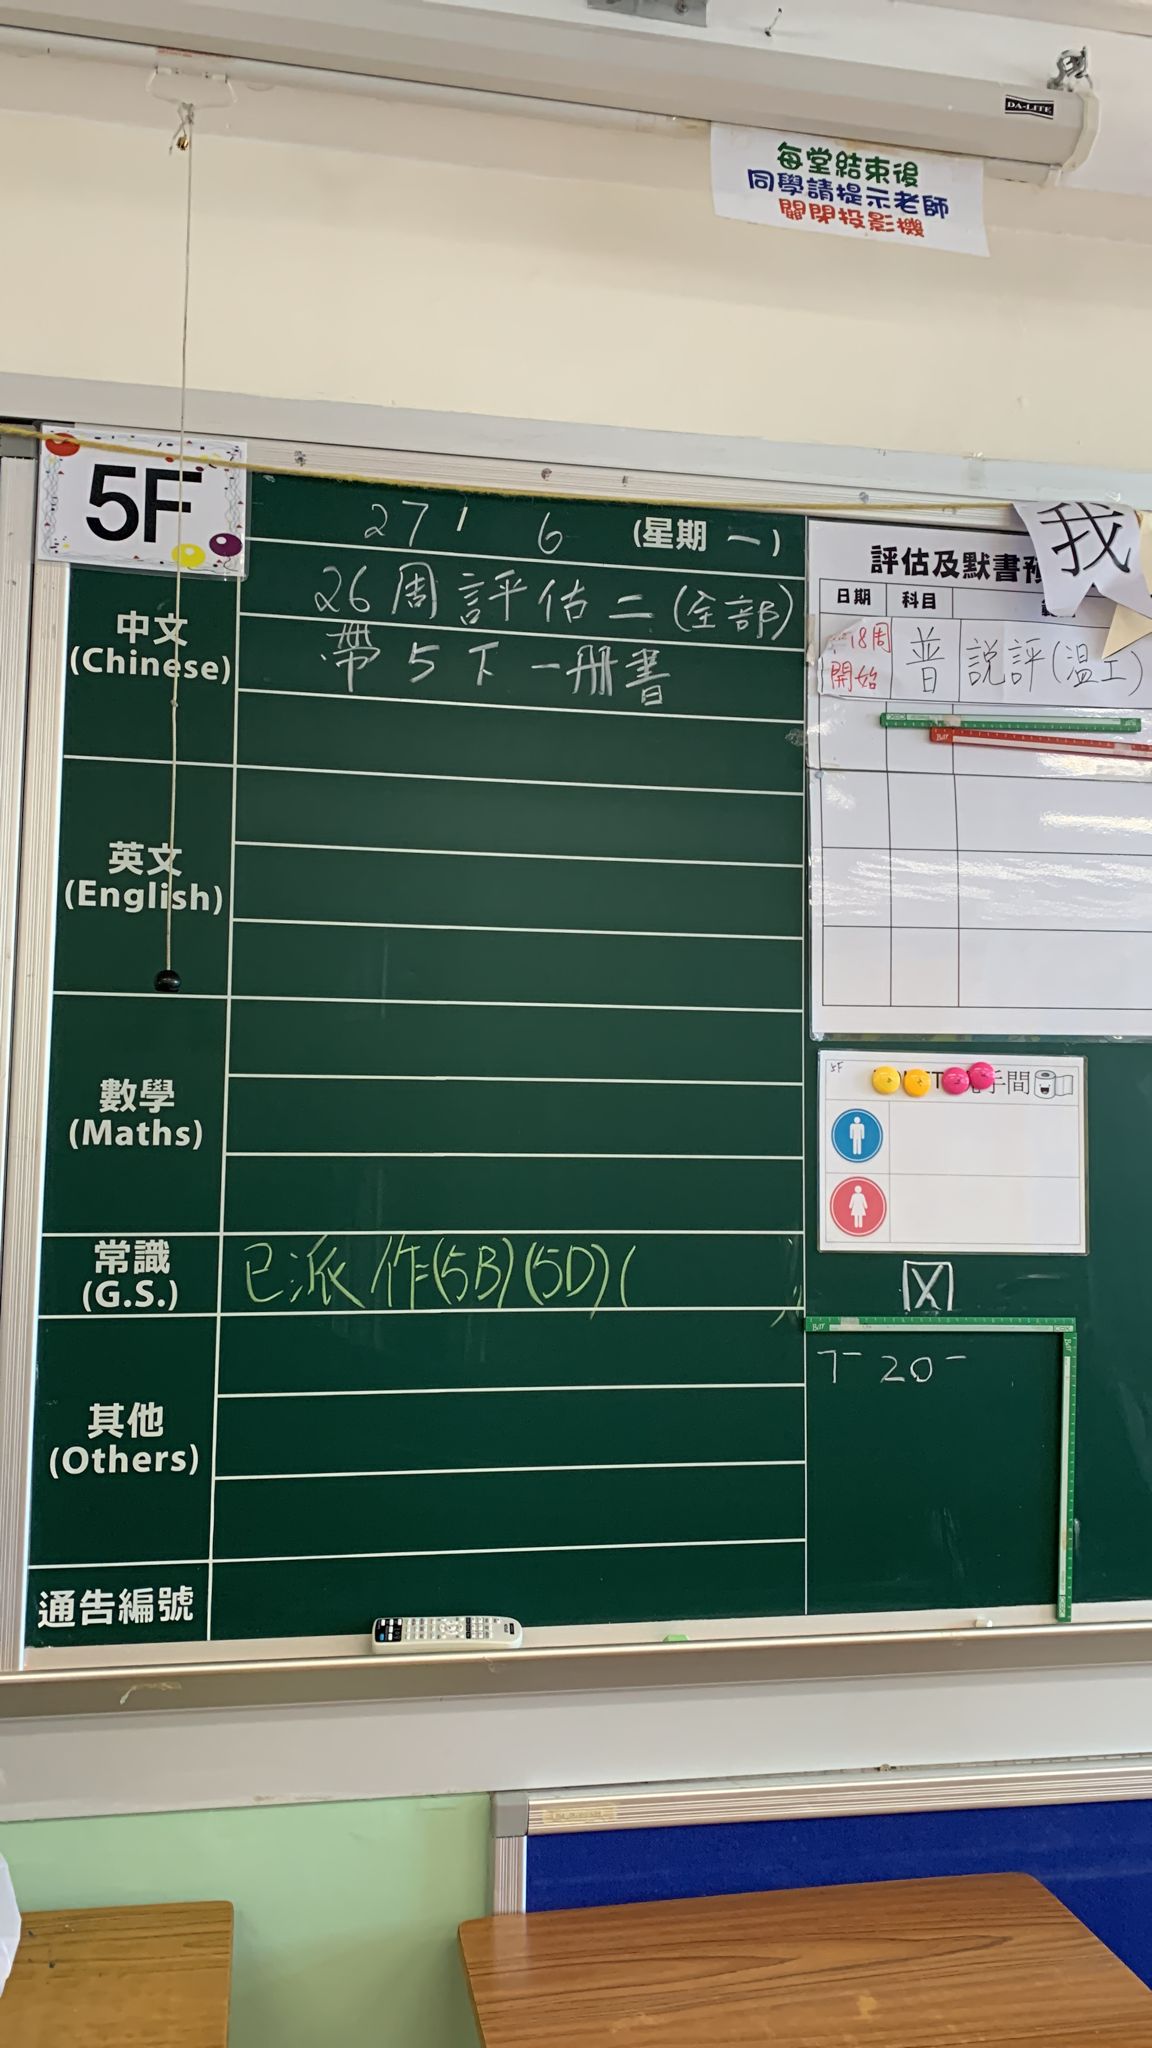 DA-LITE
每堂結束後
同學請提示老師
關閉投影機
5F
27 / 6 (星期 一)
中文
(Chinese)
26周評估二(全部)
帶5下一冊書
英文
(English)
數學
(Maths)
常識
(G.S.)
已派作(5B)(5D)( )
其他
(Others)
通告編號
評估及默書預
我
日期 科目
18周
開始
普
說評(溫工)
5F
手間
X
7- 20-